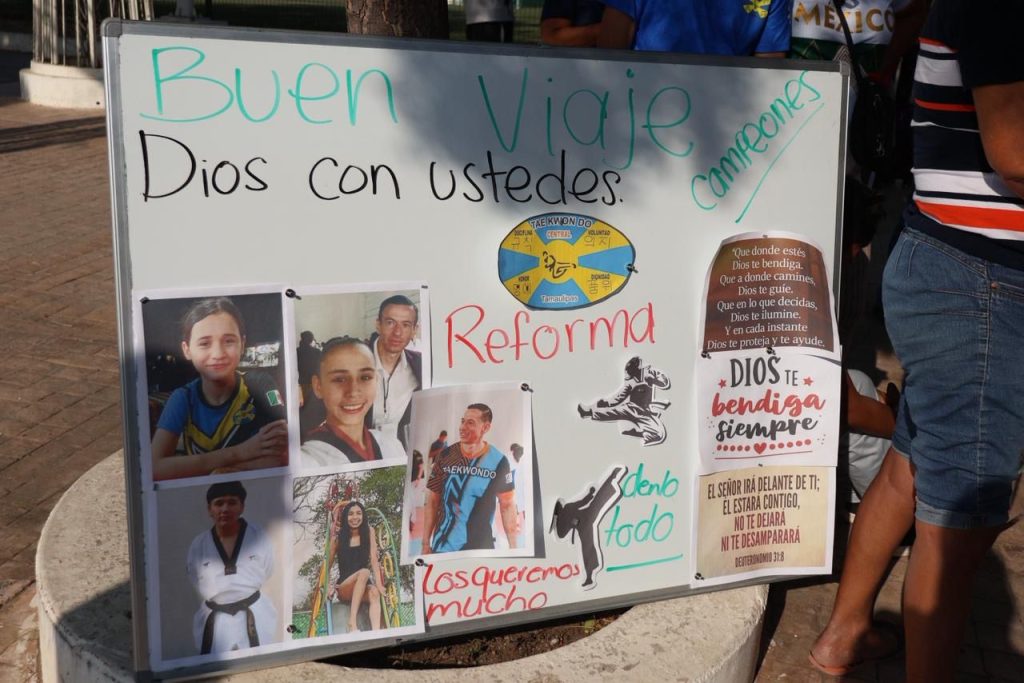 Buen Viaje
Campeones
Dios con ustedes.
TAE KWON DO
CENTRAL
DISCIPLINA
VOLUNTAD
HONOR
DIGNIDAD
Tamaulipas
Reforma
"Que donde estés
Dios te bendiga.
Que a donde camines,
Dios te guíe.
Que en lo que decidas,
Dios te ilumine.
Y en cada instante
Dios te proteja y te ayude.
DIOS TE
bendiga
siempre
EL SEÑOR IRÁ DELANTE DE TI;
ÉL ESTARÁ CONTIGO,
NO TE DEJARÁ
NI TE DESAMPARARÁ
DEUTERONOMIO 31:8
denlo
todo
Los queremos
mucho
TAEKWONDO
MÉXICO